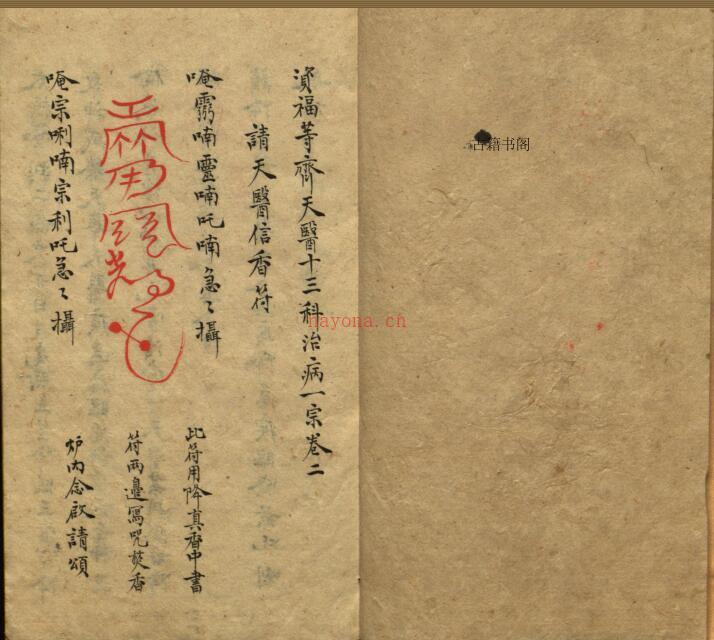 資福等齊天醫十三科治病一宗卷二
請天醫信香符
唵霛喃靈喃吒喃急〻攝
唵宗唎喃宗利吒急〻攝
此符用降真香中書
符兩邊寫咒焚香
炉内念啟請頌
古籍书阁
hayona.cn